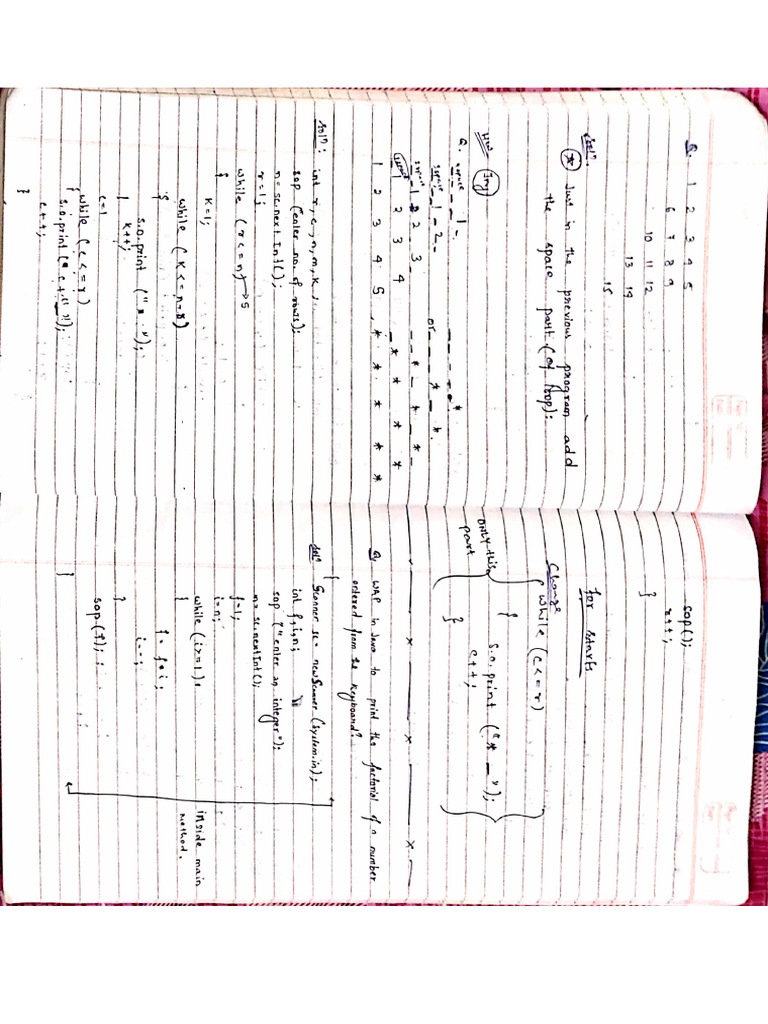 Q. 1 2 3 4 5
6 7 8 9
10 11 12
13 14
15
Soln.
* Just in the previous program add
the space part (of loop):
HW Imp
Q. space _ _ _ _ 1 _
space _ _ 1 _ 2 _
space _ 1 _ 2 _ 3 _
space 1 2 3 4
1 2 3 4 5
_ _ _ _ *
or _ _ _ * _ *
_ _ * _ * _ * _
_ * * * *
* * * * *
Soln: int r, c, n, m, k,
sop (enter no. of rows):
n = sc.nextInt();
r=1;
while (r<=n) → 5
{
k=1;
while (k<=n-r)
{
s.o.print ("_ _");
k++;
}
c=1
while (c<=r)
{
s.o.print (" c+" _");
c++;
}
sop();
r++;
}
for stars
Change
while (c<=r)
{
s.o.print ("* _");
c++;
}
ONLY this
part
x x x
Q. WAP in Java to print the factorial of a number
ordered from the keyboard?
Soln
{
Scanner sc = new Scanner (System.in);
int f, i, n;
sop ("enter an integer");
n= sc.nextInt();
f=1;
i=n;
while (i>=1)
{
f = f*i;
i--;
}
sop (f);
}
inside main
method.